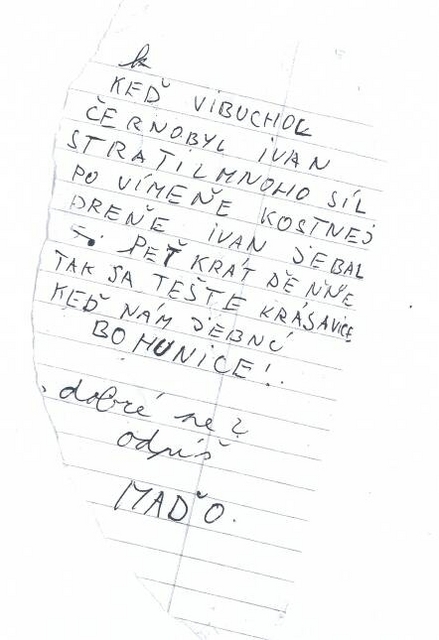 KEĎ VIBUCHOL
ČERNOBYL IVAN
STRATIL MNOHO SÍL
PO VÍMEŇE KOSTNEJ
DREŇE IVAN JEBAL
5. PEŤ KRÁT DĚŇŇE
TAK SA TEŠTE KRÁSAVICE
KEĎ NÁM JEBNÚ
BOHUNICE!.
dobré ne?
odpíš
MAĎO.